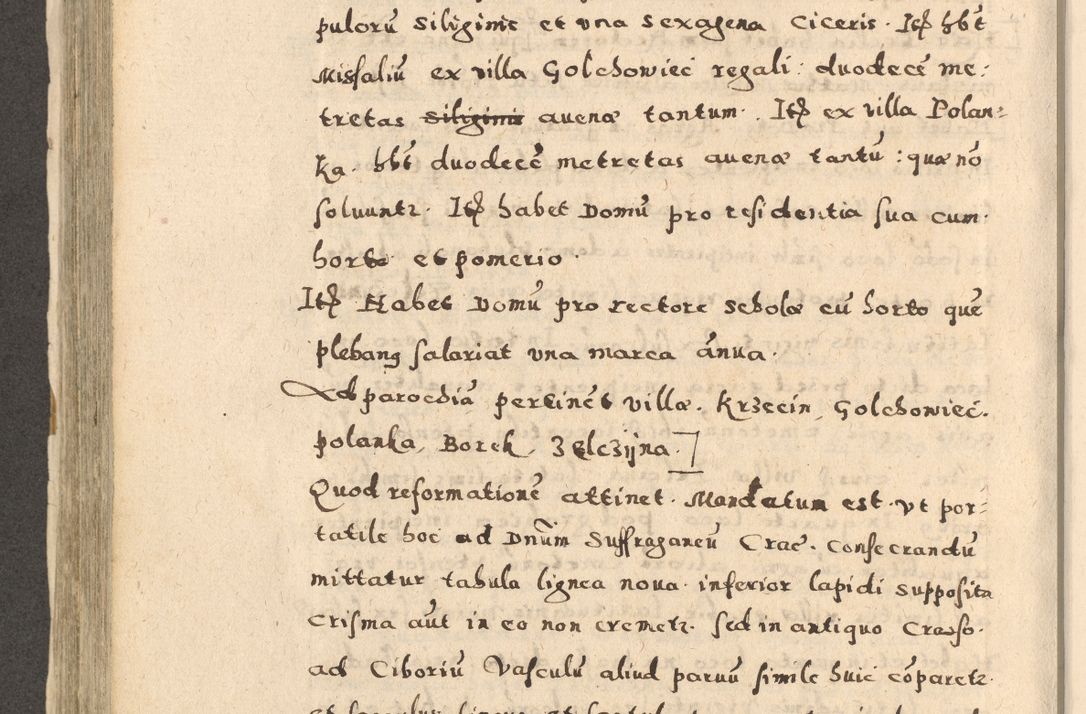 pulorũ siliginis et vna sexagena Ciceris. Itẽ hẽt
Missaliũ ex villa Golchowiec regali: duodecẽ me:
tretas siliginis auenæ tantum. Itẽ ex villa Polan=
ka. hẽt duodecẽ metretas auenæ tantũ: quæ nõ
soluuntr. Itẽ habet Domũ pro residentia sua cum
horto et pomerio.
Itẽ Habet Domũ pro rectore scholæ cũ horto quẽ
plebanus salariat vna marca ãnua.
Ad parochiã pertinẽt villæ. Krzecin, Golchowiec.
polanka, Borek, Zelczijna.
Quod reformationẽ attinet. Mandatum est. vt por=
tatile hoc ad Dnũm Suffraganeũ Crac. consecrandũ
mittatur tabula lignea noua inferior lapidi supposita
Crisma aũt in eo non cremetr. sed in antiquo Crasso.
ad Ciboriũ Vasculũ aliud paruũ simile huic cõparetr.